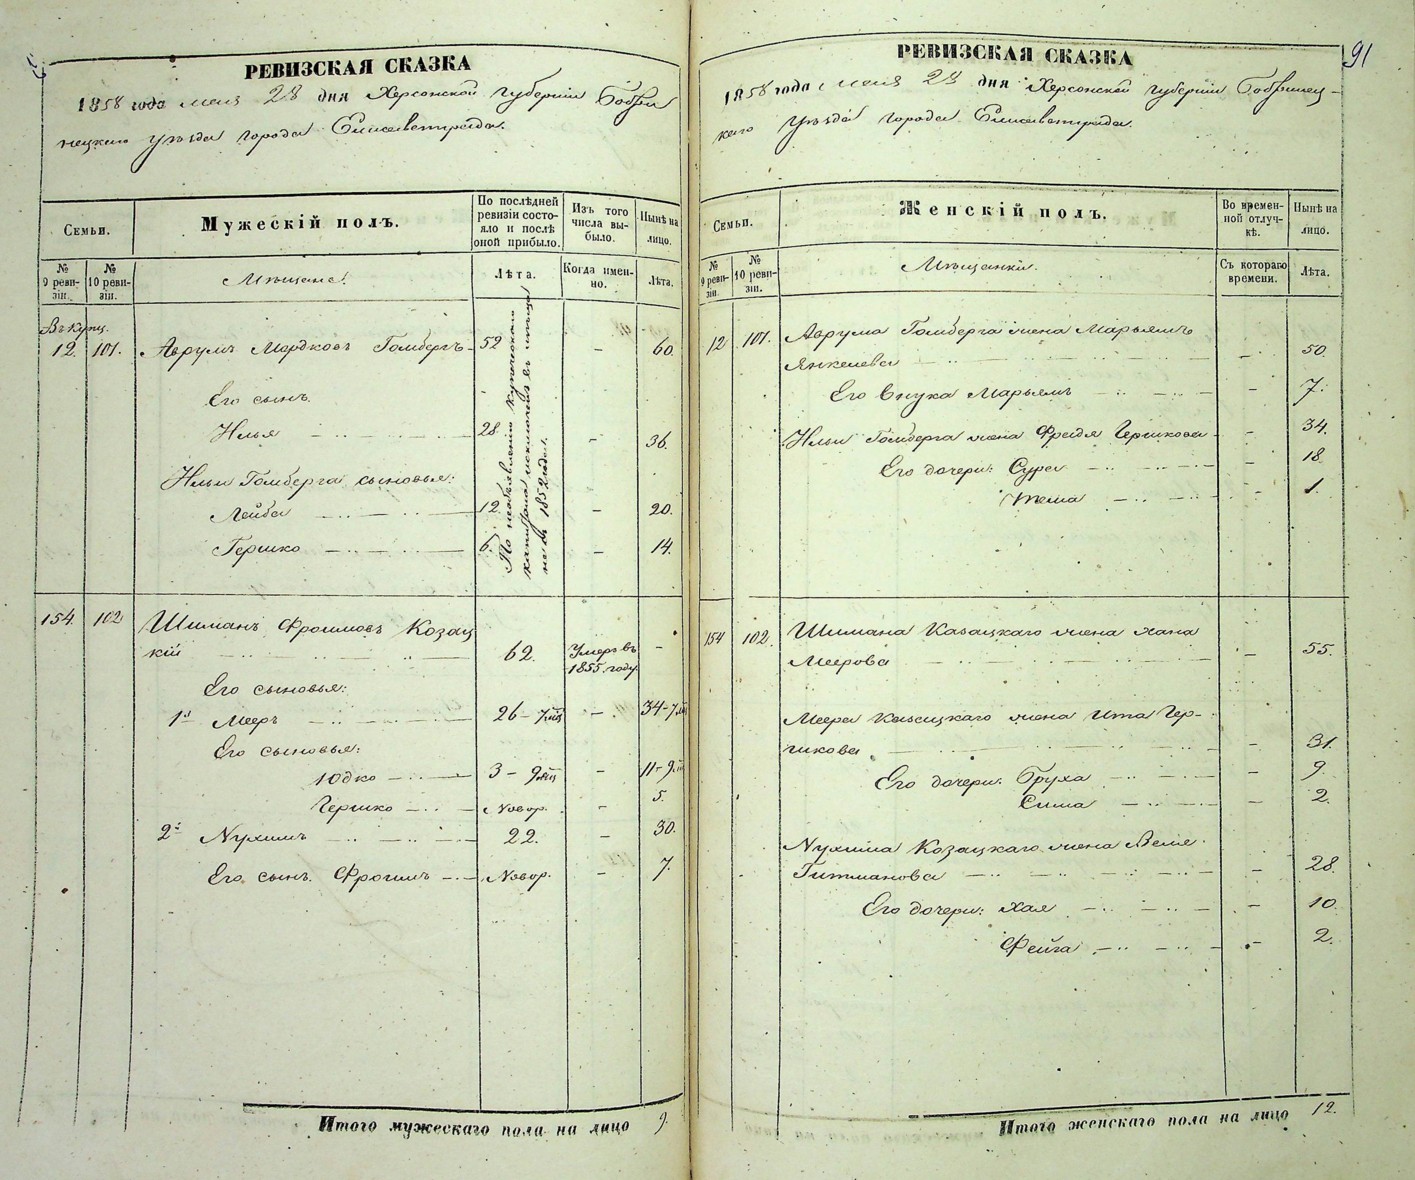 РЕВИЗСКАЯ СКАЗКА
1858 года мая 28 дня Херсонской губерніи Бобри
нецкаго уѣзда города Елисаветграда.
Семьи.
Мужескій полъ.
По послѣдней
ревизіи состо-
яло и послѣ
оной прибыло.
Изъ того
числа вы-
было.
Нынѣ на
лицо.
№
9 реви-
зіи.
№
10 реви-
зіи.
Мѣщане.
Лѣта.
Когда имен-
но.
Лѣта.
Въ купц.
12. 101. Аврумъ Мордковъ Гомбергъ 52 – 60.
Его сынъ.
Илья 28. – 36.
Ильи Гомберга сыновья:
Лейба 12. – 20.
Гершко 6. – 14.
По необъявленію купеческаго
капитала исключенъ въ мѣща
не въ 1852 годѣ.
154. 102 Шиманъ Фроимовъ Козац
кій 62. Умеръ въ –
1855. году.
Его сыновья:
1й Мееръ 26 – 7 мцъ – 34 – 7 мц
Его сыновья:
Юдко 3 – 9 мцъ – 11 – 9 м
Гершко Новор. – 5.
2й Нухимъ 22. – 30.
Его сынъ. Фроимъ Новор. – 7.
Итого мужескаго пола на лицо 9.
91
РЕВИЗСКАЯ СКАЗКА
1858 года мая 28 дня Херсонской губерніи Бобринец-
каго уѣзда города Елисаветграда.
Семьи.
Женскій полъ.
Во времен-
ной отлуч-
кѣ.
Нынѣ на
лицо.
№
9 реви-
зіи.
№
10 реви-
зіи.
Мѣщанки.
Съ котораго
времени.
Лѣта.
12 101. Аврума Гомберга жена Марьямъ
Янкелева – 50.
Его внука Марьямъ – 7.
Ильи Гомберга жена Фрейдя Гершкова – 34.
Его дочери: Сура – 18
Тема – 1.
154 102. Шимана Казацкаго жена Хана
Меерова – 55.
Меера Казацкаго жена Ита Гер-
шкова – 31.
Его дочери: Бруха – 9.
Сима – 2.
Нухима Козацкаго жена Веля
Гитманова – 28.
Его дочери: Хая – 10.
Фейга – 2.
Итого женскаго пола на лицо 12.